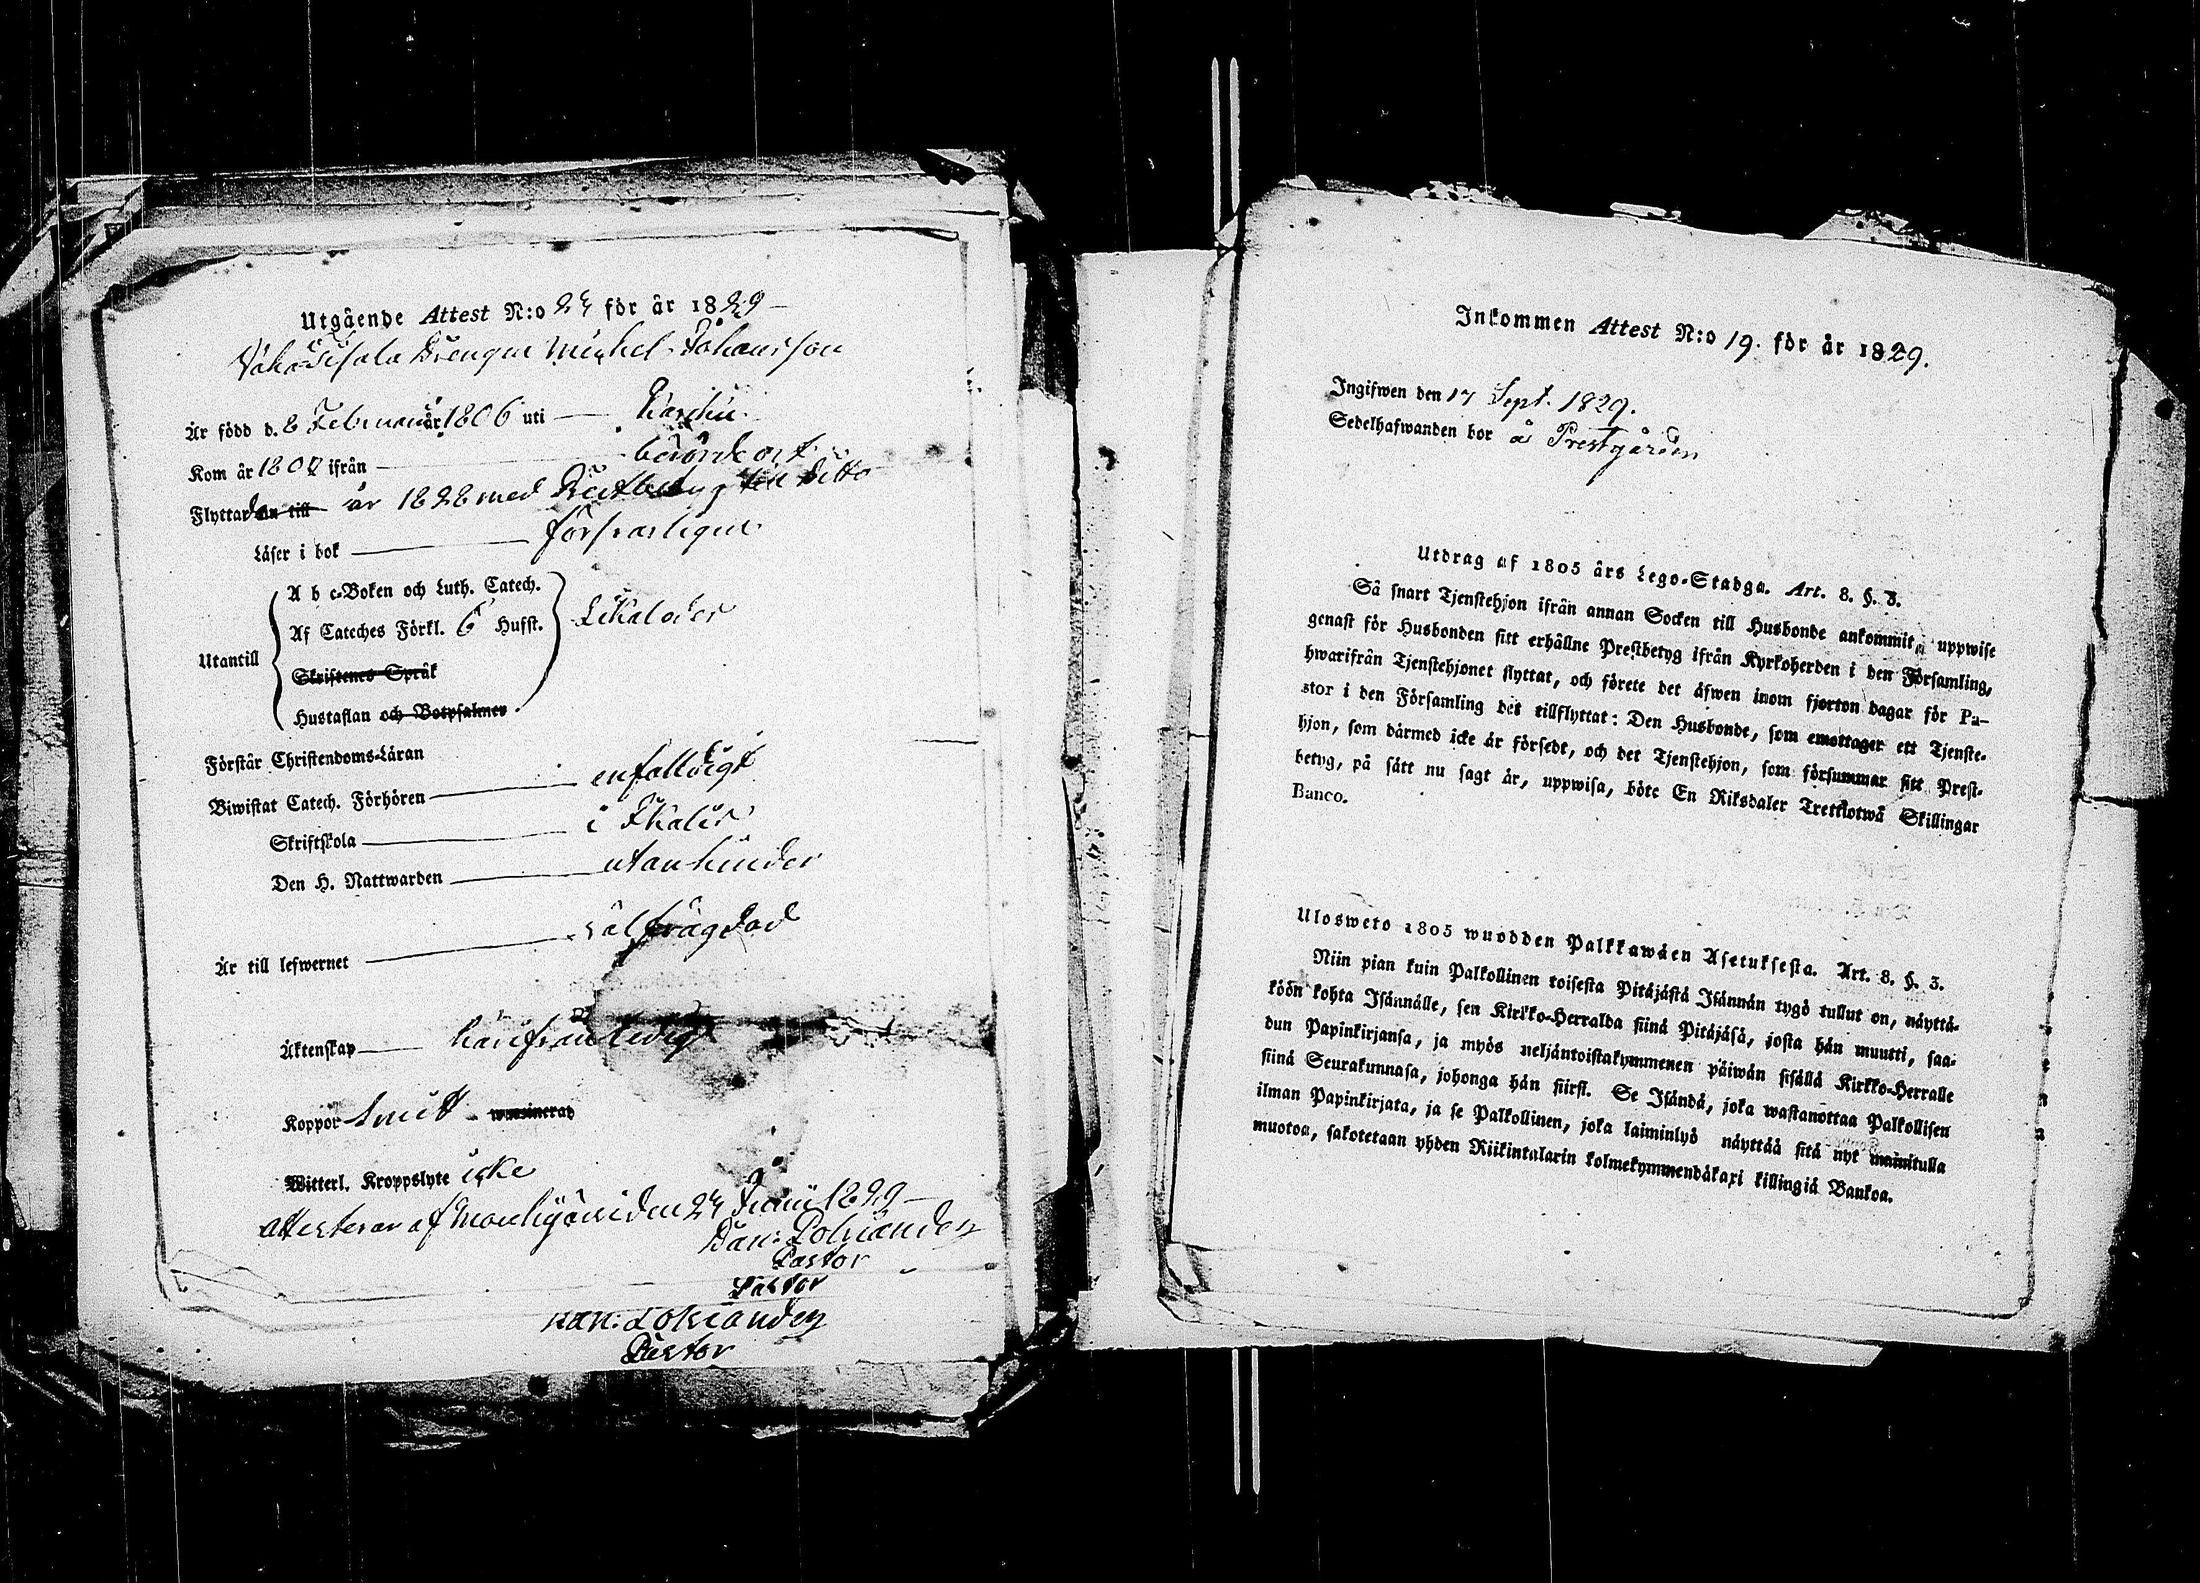 Utgående Attest N:o 24 för år 1829
Drengen Michel Johansson
Är född d. 8 Februarii år 1806 uti Karcku
Kom år 1807 ifrån berörde ort
Flyttade år 1828 med Prestbetyg till ditto
Läser i bok försvarligen
A b c-Boken och Luth. Catech.
Af Catech:s Förkl. 6 Husst. Likaledes
Utantill
Skriftenes Språk
Hustaflan och Botpsalmer
Förstår Christendoms-Läran enfalldigt
Biwistat Catech. Förhören i Ikalis
Skriftskola
Den H. Nattwarden utan hinder
Är till lefwernet välfrägdad
Äktenskap härifrån ledig
Koppor haft waccinerad
Witterl. Kroppslyte icke
Attesterar af Mouhijärvi den 24 Junii 1829
Dan: Polviander
Pastor
Pastor
Dan: Polviander
Pastor
Inkommen Attest N:o 19. för år 1829.
Ingifwen den 17 Sept. 1829.
Sedelhafwanden bor å Prestgården
Utdrag af 1805 års Lego-Stadga. Art. 8. §. 3.
Så snart Tjenstehjon ifrån annan Socken till Husbonde ankommit, uppwise
genast för Husbonden sitt erhållne Prestbetyg ifrån Kyrkoherden i den Församling,
hwarifrån Tjenstehjonet flyttat, och förete det äfwen inom fjorton dagar för Pa-
stor i den Församling det tillflyttat: Den Husbonde, som emottager ett Tjenste-
hjon, som därmed icke är försedt, och det Tjenstehjon, som försummar sitt Prest-
betyg, på sätt nu sagt är, uppwisa, böte En Riksdaler Trettiotwå Skillingar
Banco.
Ulosweto 1805 wuodden Palkkawäen Asetuksesta. Art. 8. §. 3.
Niin pian kuin Palkollinen toisesta Pitäjästä Isännän tygö tullut on, näyttä-
köön kohta Isännälle, sen Kirkko-Herralda siinä Pitäjäsä, josta hän muutti, saa-
dun Papinkirjansa, ja myös neljäntoistakymmenen päiwän sisällä Kirkko-Herralle
siinä Seurakunnasa, johonga hän siirsi. Se Isändä, joka wastanottaa Palkollisen
ilman Papinkirjata, ja se Palkollinen, joka laiminlyö näyttää sitä nyt mainitulla
muotoa, sakotetaan yhden Riikintalarin kolmekymmendäkaxi killingiä Bankoa.